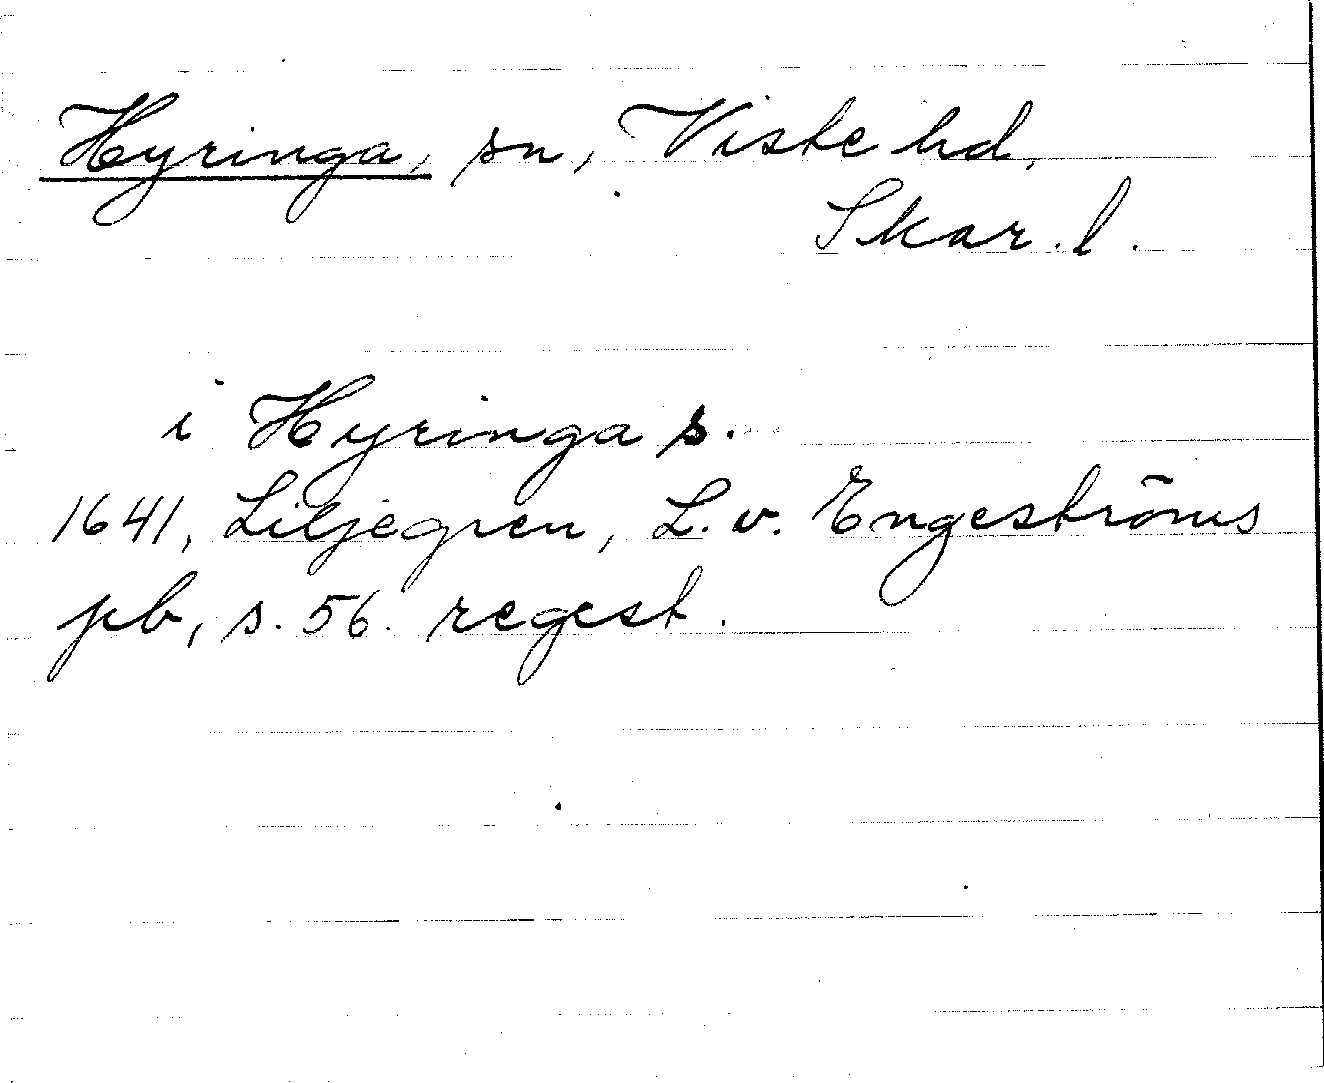 Hyringa, sn, Viste hd,
Skar. l.
i Hyringa s.
1641, Liljegren, L. v. Engeströms
pb, s. 56. regest.